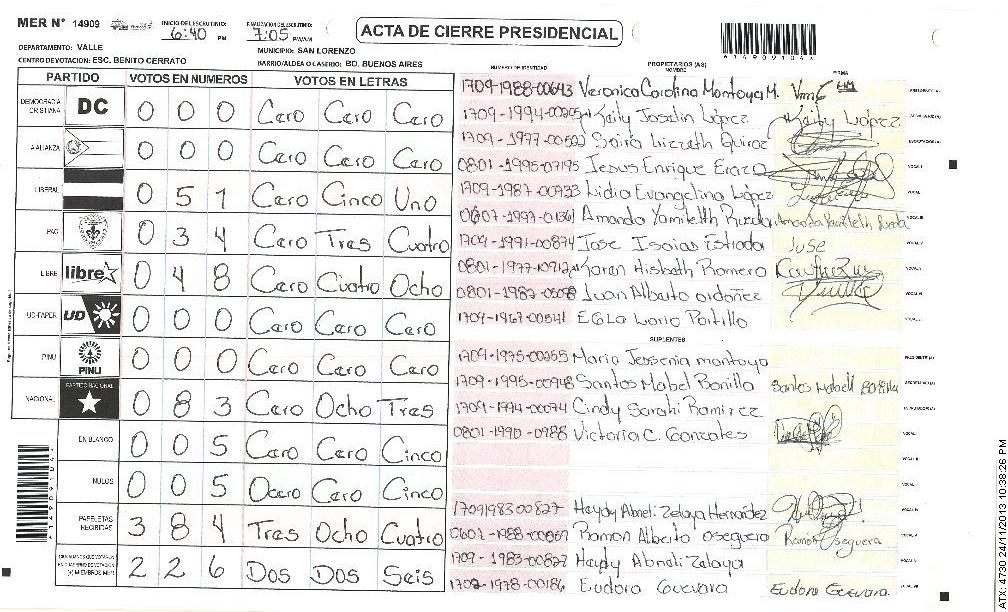 MER N° 14909
INICIO DE ESCRUTINIO: 6:40 PM
FINALIZACION DEL ESCRUTINIO: 7:05 PM/AM
ACTA DE CIERRE PRESIDENCIAL
DEPARTAMENTO: VALLE
MUNICIPIO: SAN LORENZO
CENTRO DE VOTACION: ESC. BENITO CERRATO
BARRIO/ALDEA O CASERIO: BO. BUENOS AIRES
*14909104*
PARTIDO VOTOS EN NUMEROS VOTOS EN LETRAS
DEMOCRACIA CRISTIANA DC 0 0 0 Cero Cero Cero
ALIANZA 0 0 0 Cero Cero Cero
LIBERAL 0 5 1 Cero Cinco Uno
PAC 0 3 4 Cero Tres Cuatro
LIBRE libre 0 4 8 Cero Cuatro Ocho
UD-FAPER UD 0 0 0 Cero Cero Cero
PINU PINU 0 0 0 Cero Cero Cero
NACIONAL PARTIDO NACIONAL 0 8 3 Cero Ocho Tres
EN BLANCO 0 0 5 Cero Cero Cinco
NULOS 0 0 5 Ocero Cero Cinco
PAPELETAS RECIBIDAS 3 8 4 Tres Ocho Cuatro
CIUDADANOS QUE VOTARON (+) MIEMBROS MER 2 2 6 Dos Dos Seis
NUMERO DE IDENTIDAD PROPIETARIOS (AS) NOMBRE FIRMA
1709-1988-00643 Veronica Carolina Montoya M.
Keily Joselin López Keily López
0801-1995-07195 Jesus Enrique
1709-1987-00733 Lidia Evangelina López
Amanda Yamileth Rueda Amanda Yamileth Rueda
1709-1991-00874 Jose Isaias Estrada Jose
Karen Hisbath Romero
Juan Alberto ordoñez
1709-1967-00541
SUPLENTES
1709-1975-00255 Maria Jessenia montoya
1709-1995-00948 Santos Mabel Bonilla Santos Mabell Bonilla
1709-1994-00074 Cindy Sarahi Ramirez
0801-1990-0988 Victoria C. Gonzales
1709198300827 Haydy Abneli Zelaya Hernández
Ramon Alberto oseguera Ramon oseguera
1709-1983-00827 Haydy Abneli Zelaya
1709-1978-00186 Eudora Guevara Eudora Guevara
*14909104*
ATX: 4730 24/11/2013 10:38:26 PM